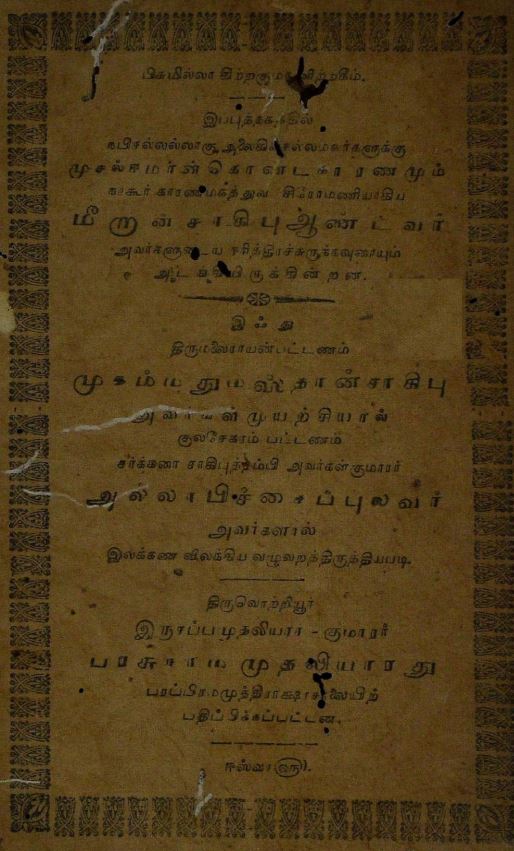 பிசுமில்லா கிற்றகுமானிற்றகீம்.
இப்புத்தகத்தில்
நபிசல்லல்லாகு அலைகிசல்லமவர்களுக்கு
முசல்ஈமான்கொண்டகாரணமும்
நாகூர் காரணமகத்துவ சிரோமணியாகிய
மீறான்சாகிபுஆண்டவர்
அவர்களுடைய சரித்திரச்சுருக்கவுரையும்
அடங்கியிருக்கின்றன.
இஃது
திருமலைராயன்பட்டணம்
முகம்மதுமஸ்தான்சாகிபு
அவர்கள்முயற்சியால்
குலசேகரம் பட்டணம்
சர்க்கரை சாகிபுத்தம்பி அவர்கள்குமாரர்
அல்லாபிச்சைப்புலவர்
அவர்களால்
இலக்கண விலக்கிய வழுவறத்திருத்தியபடி.
திருவொற்றியூர்
இருசப்பமுதலியார் - குமாரர்
பரசுராம முதலியாரது
பரப்பிரமமுத்திராக்ஷரசாலையிற்
பதிப்பிக்கப்பட்டன.
ஈஸ்வர